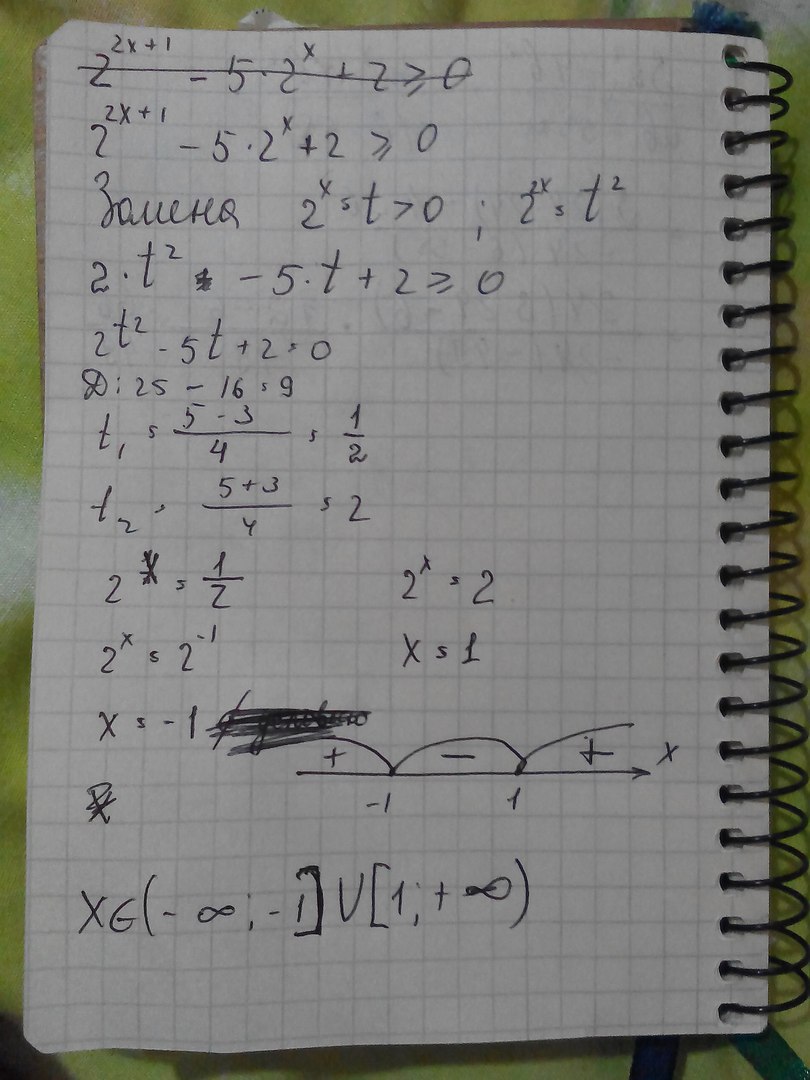 2^{2x+1} - 5·2^x + 2 ≥ 0
2^{2x+1} - 5·2^x + 2 ≥ 0
Замена 2^x = t > 0 ; 2^{2x} = t^2
2·t^2 - 5·t + 2 ≥ 0
2t^2 - 5t + 2 = 0
D: 25 - 16 = 9
t_1 = \frac{5-3}{4} = \frac{1}{2}
t_2 = \frac{5+3}{4} = 2
2^x = \frac{1}{2} 2^x = 2
2^x = 2^{-1} x = 1
x = -1
+ - + x
-1 1
x∈(-∞;-1]∪[1;+∞)